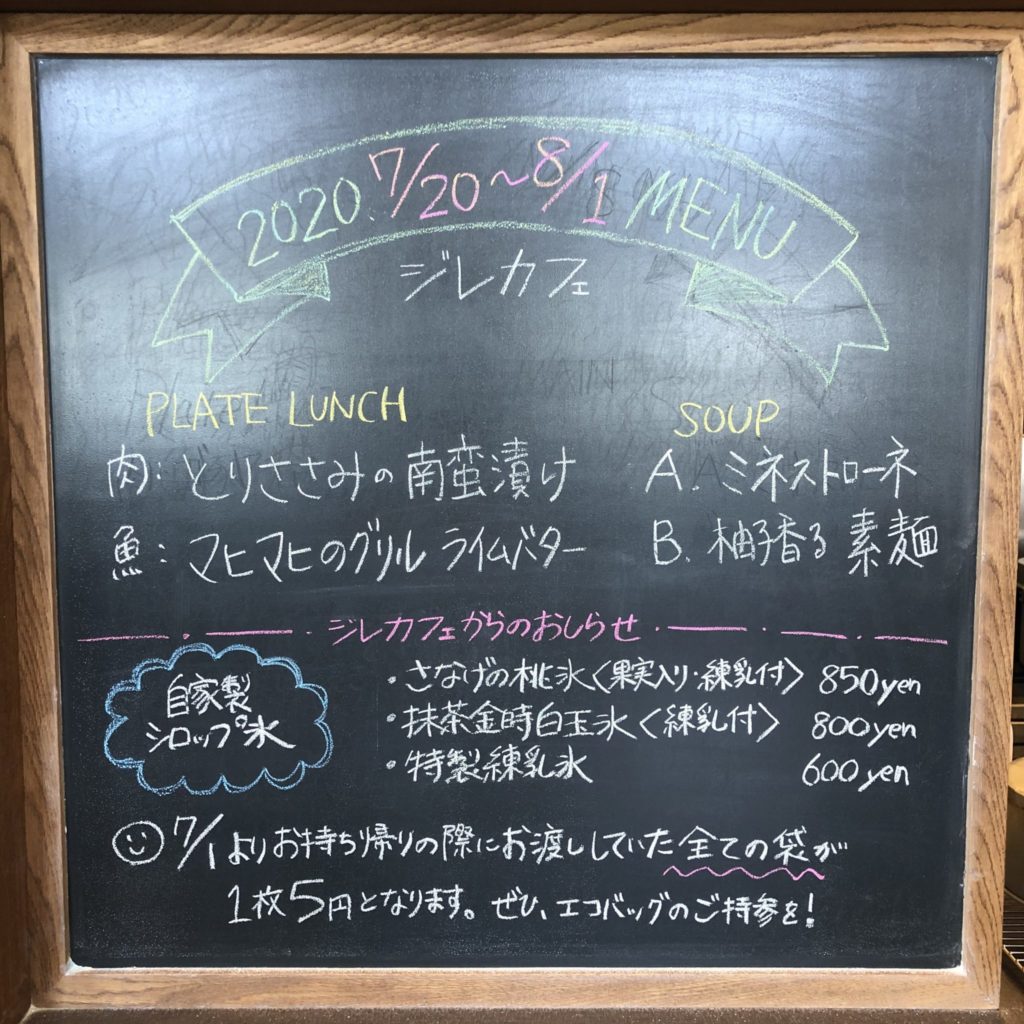 2020. 7/20～8/1 MENU
ジレカフェ
PLATE LUNCH
肉: とりささみの南蛮漬け
魚: マヒマヒのグリル ライムバター
SOUP
A. ミネストローネ
B. 柚子香る 素麺
ジレカフェからのおしらせ
自家製
シロップ氷
・さなげの桃氷〈果実入り・練乳付〉 850yen
・抹茶金時白玉氷〈練乳付〉 800yen
・特製練乳氷 600yen
7/1よりお持ち帰りの際にお渡ししていた全ての袋が
1枚5円となります。ぜひ、エコバッグのご持参を!